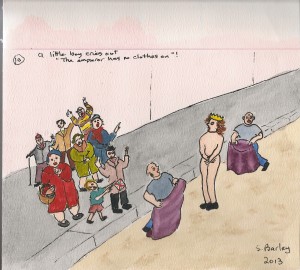 10
A little boy cries out
"The emperor has no clothes on"!
S. Barley
2013